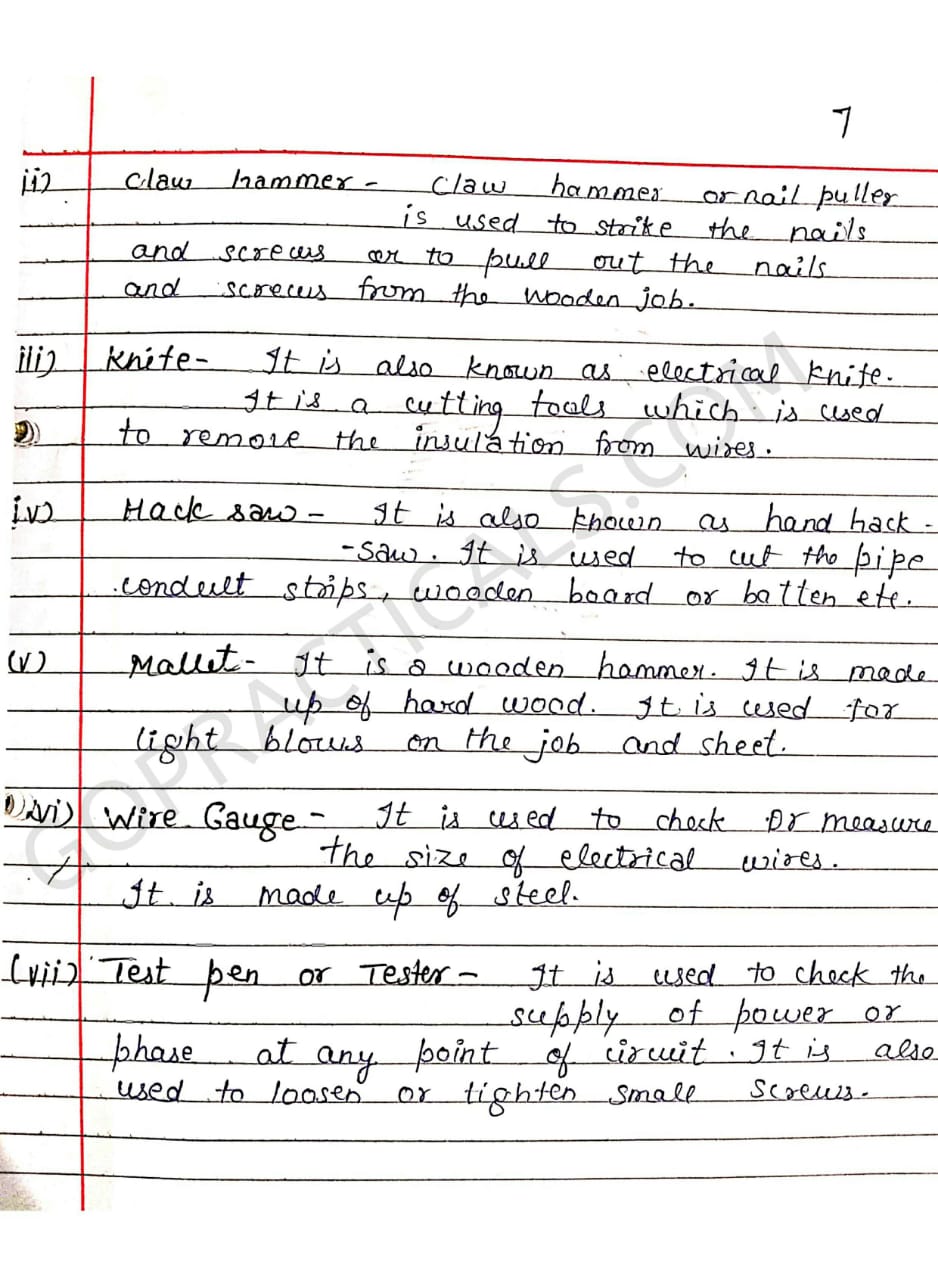 7
ii) Claw hammer - Claw hammer or nail puller
is used to strike the nails
and screws or to pull out the nails
and screws from the wooden job.
iii) Knife - It is also known as electrical knife.
It is a cutting tools which is used
to remove the insulation from wires.
iv) Hack saw - It is also known as hand hack -
- saw. It is used to cut the pipe
conduit strips, wooden board or batten etc.
(v) Mallet - It is a wooden hammer. It is made
up of hard wood. It is used for
light blows on the job and sheet.
vi) Wire Gauge - It is used to check or measure
the size of electrical wires.
It is made up of steel.
(vii) Test pen or Tester - It is used to check the
supply of power or
phase at any point of circuit. It is also
used to loosen or tighten small screws.
GOPRACTICALS.COM